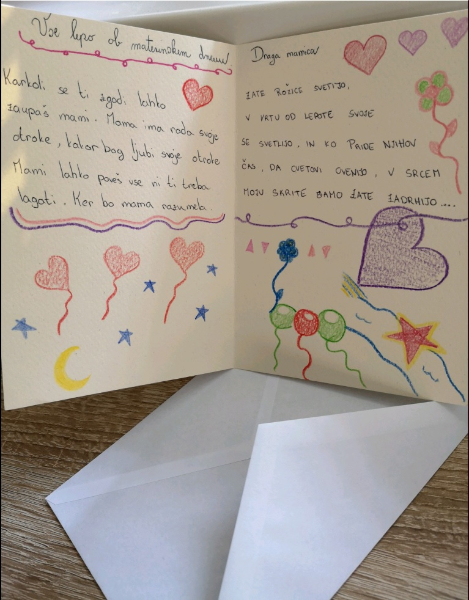 Vse lepo ob materinskem dnevu
Karkoli se ti zgodi lahko
zaupaš mami. Mama ima rada svoje
otroke, kakor bog ljubi svoje otroke
Mami lahko poveš vse ni ti treba
lagati. Ker bo mama razumela.
Draga mamica
ZATE ROŽICE SVETIJO,
V VRTU OD LEPOTE SVOJE
SE SVETLIJO, IN KO PRIDE NJIHOV
ČAS, DA CVETOVI OVENIJO, V SRCEM
MOJU SKRITE SAMO ZATE ZADRHIJO....